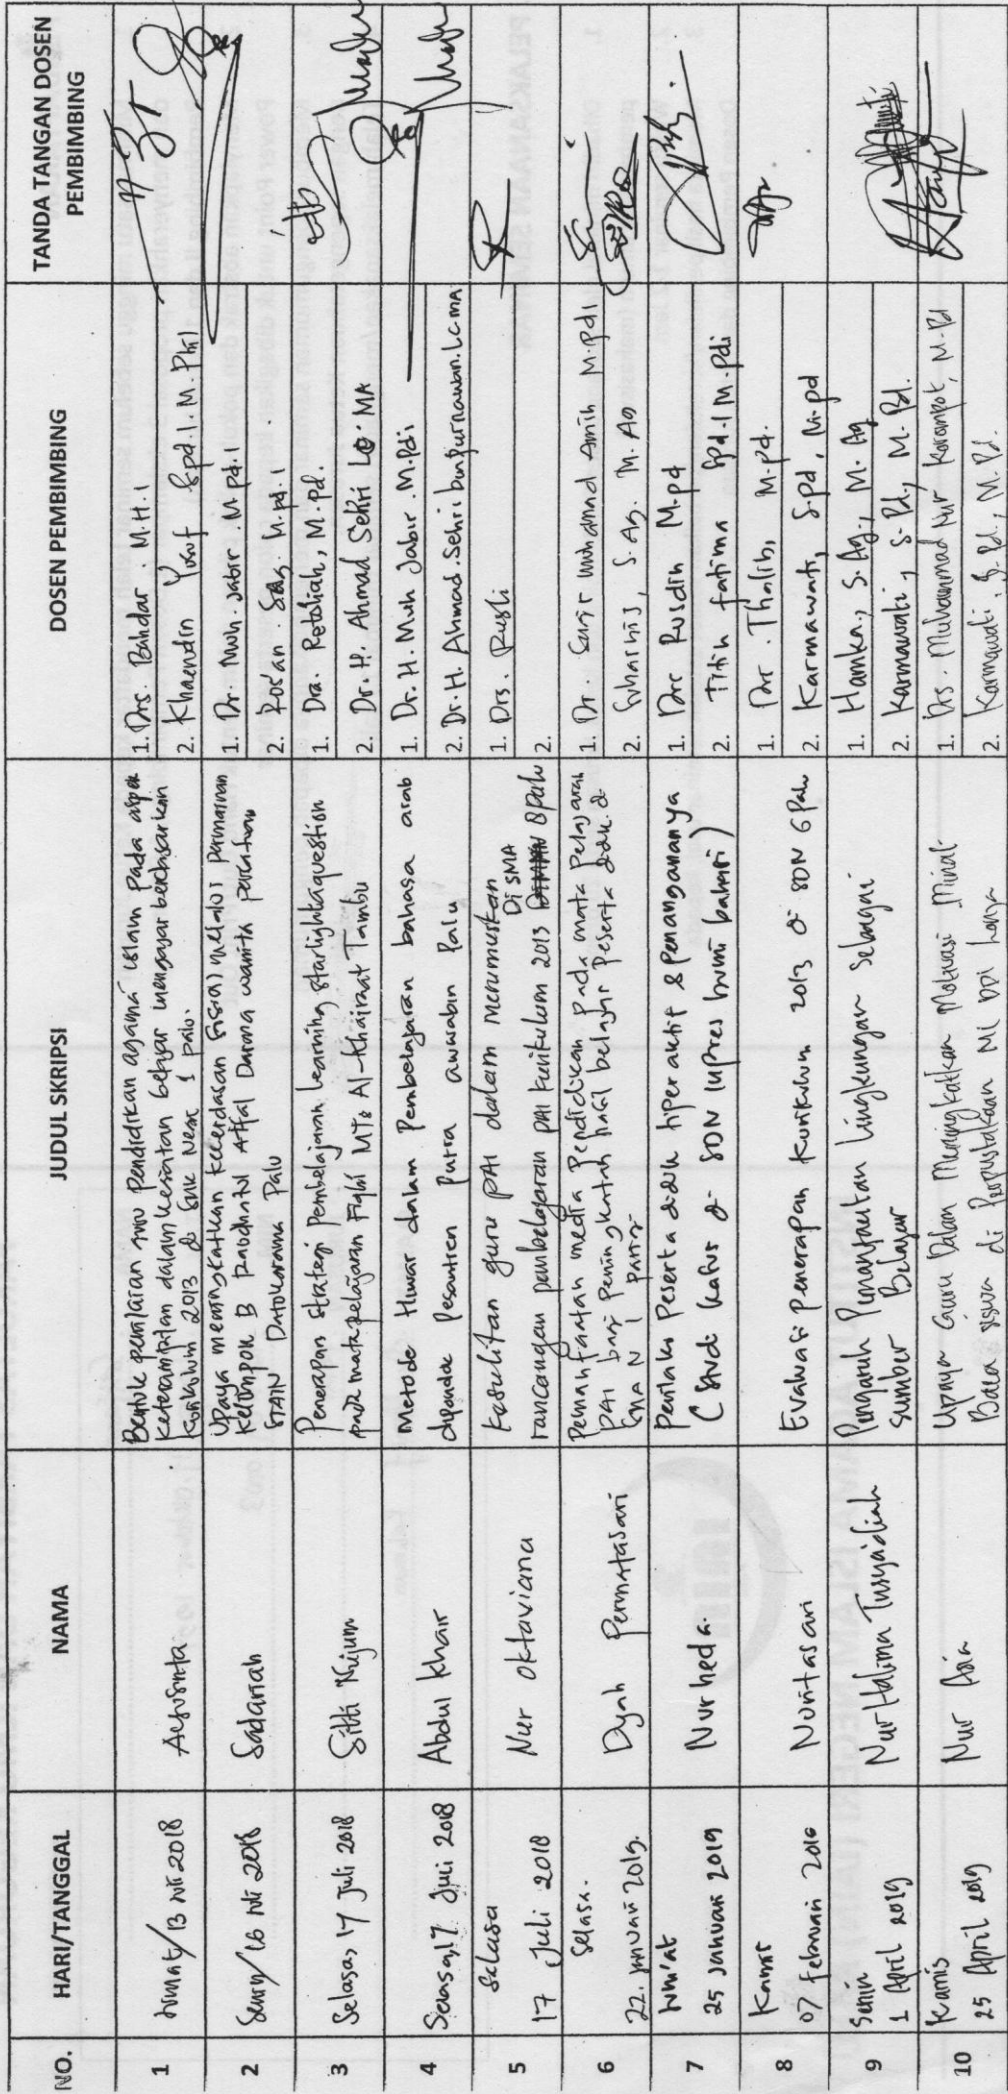 NO.
HARI/TANGGAL
NAMA
JUDUL SKRIPSI
DOSEN PEMBIMBING
TANDA TANGAN DOSEN
PEMBIMBING
1
Jum'at/13 Juli 2018
Bentuk penilaian ilmu pendidikan agama islam pada aspek
keterampilan dalam kegiatan belajar mengajar berdasarkan
Kurikulum 2013 di SMK Negri 1 palu.
1. Drs. Bahdar. M.H.I
2. Khaerudin Yusuf. S.pd.I. M.Phil
2
Senin/16 Juli 2018
Sadariah
Upaya meningkatkan kecerdasan fisial melalui permainan
kelompok B Raudhatul Atfal Darma wanita persatuan
STAIN Datokarama Palu
1. Dr. Muh. Jabir. M.pd.I
2. Rosan. S.Ag. M.pd.I
3
Selasa, 17 Juli 2018
Sitti Nujum
Penerapan strategi Pembelajaran Learning starlight question
pada mata pelajaran Fiqhi MTs Al-Khairat Tambu
1. Dra. Retoliah, M.Pd.
2. Dr. H. Ahmad Sehri Lc. MA
4
Selasa, 17 Juli 2018
Abdul Khair
Metode Hiwar dalam Pembelajaran bahasa arab
dipondok Pesantren Putra awwabin Palu
1. Dr. H. Muh Jabir. M.Pdi
2. Dr. H. Ahmad. Sehri bin Purnawan. Lc MA
5
Selasa
17 Juli 2018
Nur Oktaviana
Kesulitan guru PAI dalam merumuskan
Di SMA
rancangan pembelajaran PAI kurikulum 2013 8 Palu
1. Drs. Rusli
2.
6
Selasa.
22. januari 2019.
Dyah Permatasari
Pemanfaatan media Pendidikan pada mata Pelajaran
PAI bagi Peningkatan hasil belajar Peserta didik di
SMA N 1 Parigi
1. Dr. Muhammad Amin M.pdi
2. Suharnis, S.Ag. M.Ag
7
Jum'at
25 Januari 2019
Nurheda.
Perilaku Peserta didik hiper aktif & Penanganannya
(Studi kasus di SDN Inpres bumi bahari)
1. Drr Rusdin M.pd
2. Titin fatima S.pd.I M.Pdi
8
Kamis
07 februari
Nuritasari
Evaluasi Penerapan Kurikulum 2013 di SDN 6 Palu
1. Dr. Thalib, M.pd.
2. Karmawati, S.pd, M.pd
9
Senin
1 April 2019
Nur Halima Tursyaidiah
Pengaruh Pemanfaatan Lingkungan Sebagai
Sumber Belajar
1. Hamka, S.Ag., M.Ag
2. Karmawati, S.Pd., M.Pd.
10
Kamis
25 April 2019
Nur Asia
Upaya Guru Dalam Meningkatkan Motivasi Minat
Baca siswa di Perpustakaan MI DDI
1. Drs. Muhammad Nur Korompot, M.Pd
2. Karmawati. S.Pd., M.Pd.